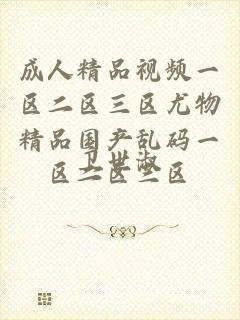 成人精品视频一
区二区三区尤物
精品国产乱码一
区二区三区